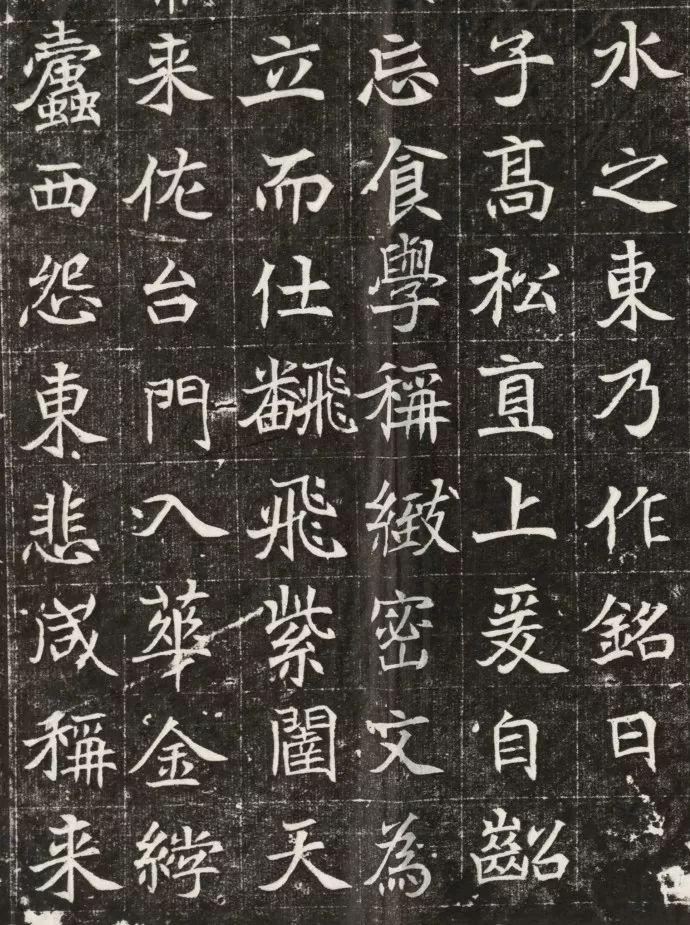 水之東乃作銘曰
子髙松直上爰自齠
忘食學稱緻密文為
立而仕飜飛紫天
来佐台門入華金
蠹西怨東悲咸稱来